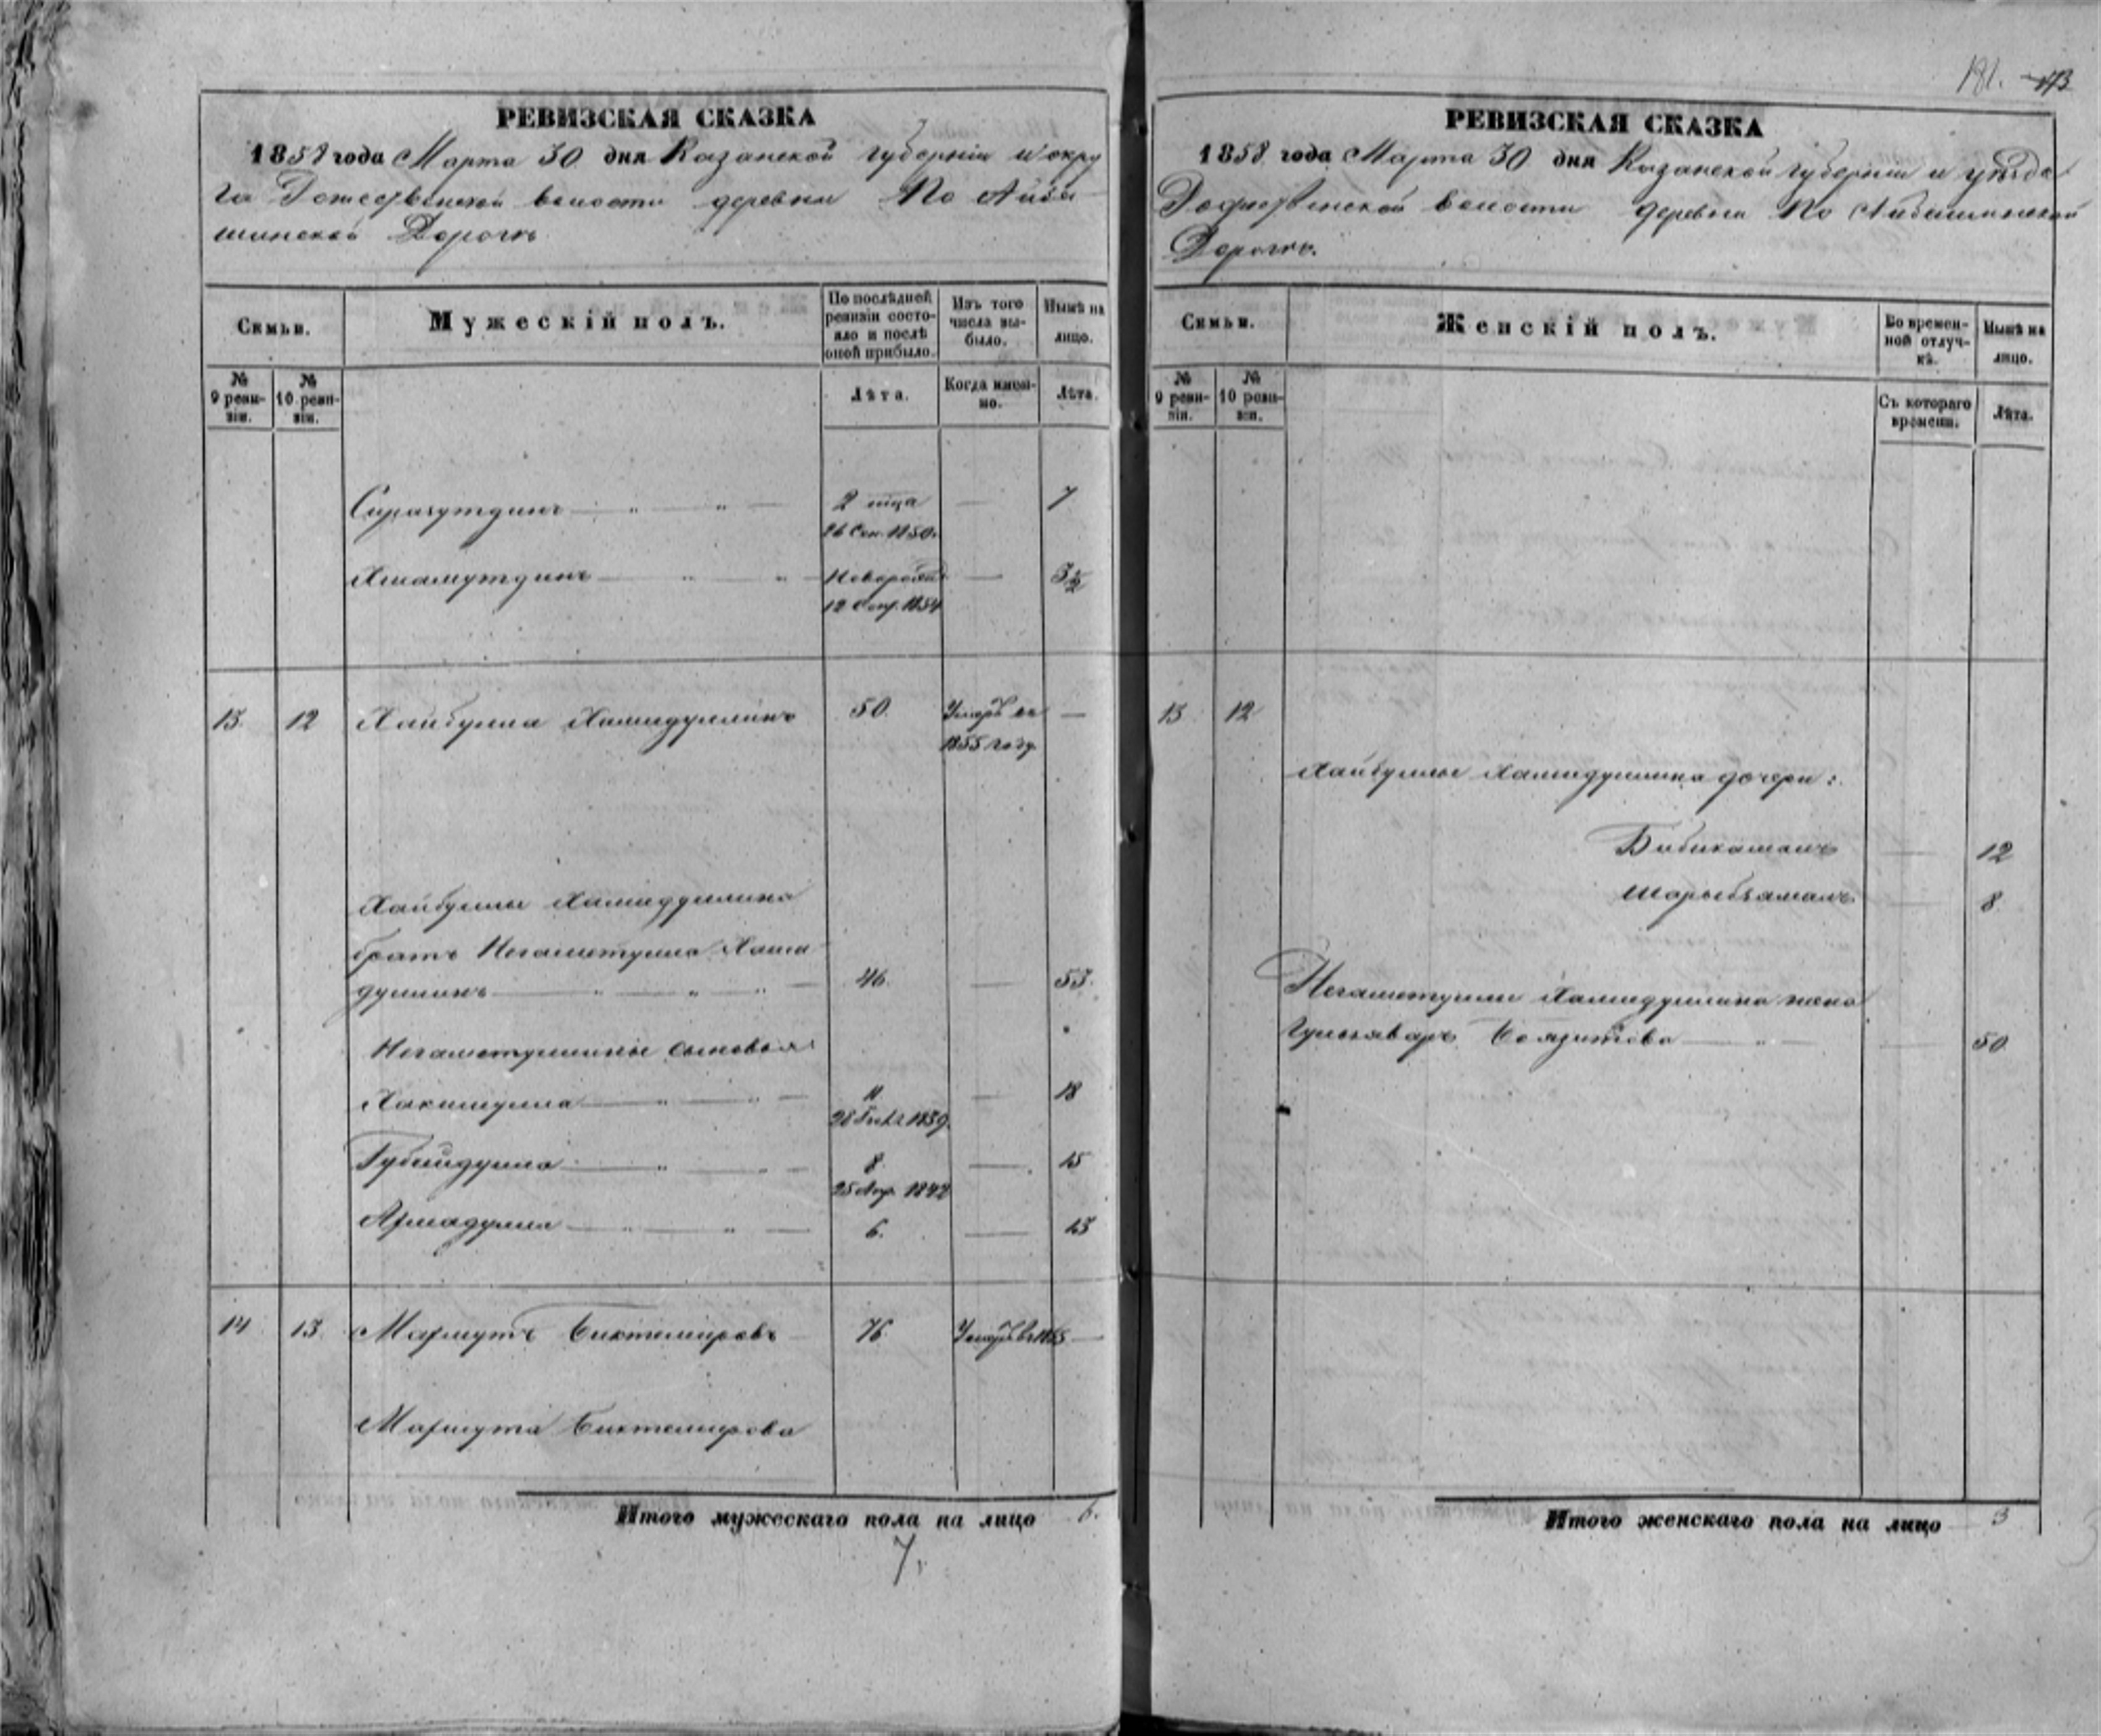 181. 173
РЕВИЗСКАЯ СКАЗКА
1858 года Марта 30 дня Казанской губернiи и окру
га волости деревни По Айби
шинской Дороге
Семьи.
Мужескiй полъ.
По послѣдней ревизiи состояло и послѣ оной прибыло.
Изъ того числа выбыло.
Нынѣ на лицо.
№ 9 ревизiи.
№ 10 ревизiи.
Лѣта.
Когда именно.
Лѣта.
Сиразутдинъ 2 мца — 7
26 Сен. 1850.
Хисамутдинъ — 3½
12 1854
13. 12 Хайбулла Хамидуллинъ 50. Умеръ въ —
1855 году
Хайбуллы Хамидуллина
братъ Негаметулла Хами
дуллинъ 46. — 53.
Негаметуллины сыновья
Хакимулла 11 — 18
28 1839.
Губейдулла 8. — 15
25 Апр. 1842
Ахмадулла 6. — 13
14 13. Махмутъ Биктемировъ 76. Умеръ въ —
Махмута Биктемирова
Итого мужескаго пола на лицо 6.
7.
РЕВИЗСКАЯ СКАЗКА
1858 года Марта 30 дня Казанской губернiи и уѣзда
волости деревни По Айбишинской
Дороге.
Семьи.
Женскiй полъ.
Во временной отлучкѣ.
Нынѣ на лицо.
№ 9 ревизiи.
№ 10 ревизiи.
Съ котораго времени.
Лѣта.
13 12
Хайбуллы Хамидуллина дочери:
Бибикамалъ — 12
— 8.
Негаметуллы Хамидуллина жена
— 50
Итого женскаго пола на лицо 3